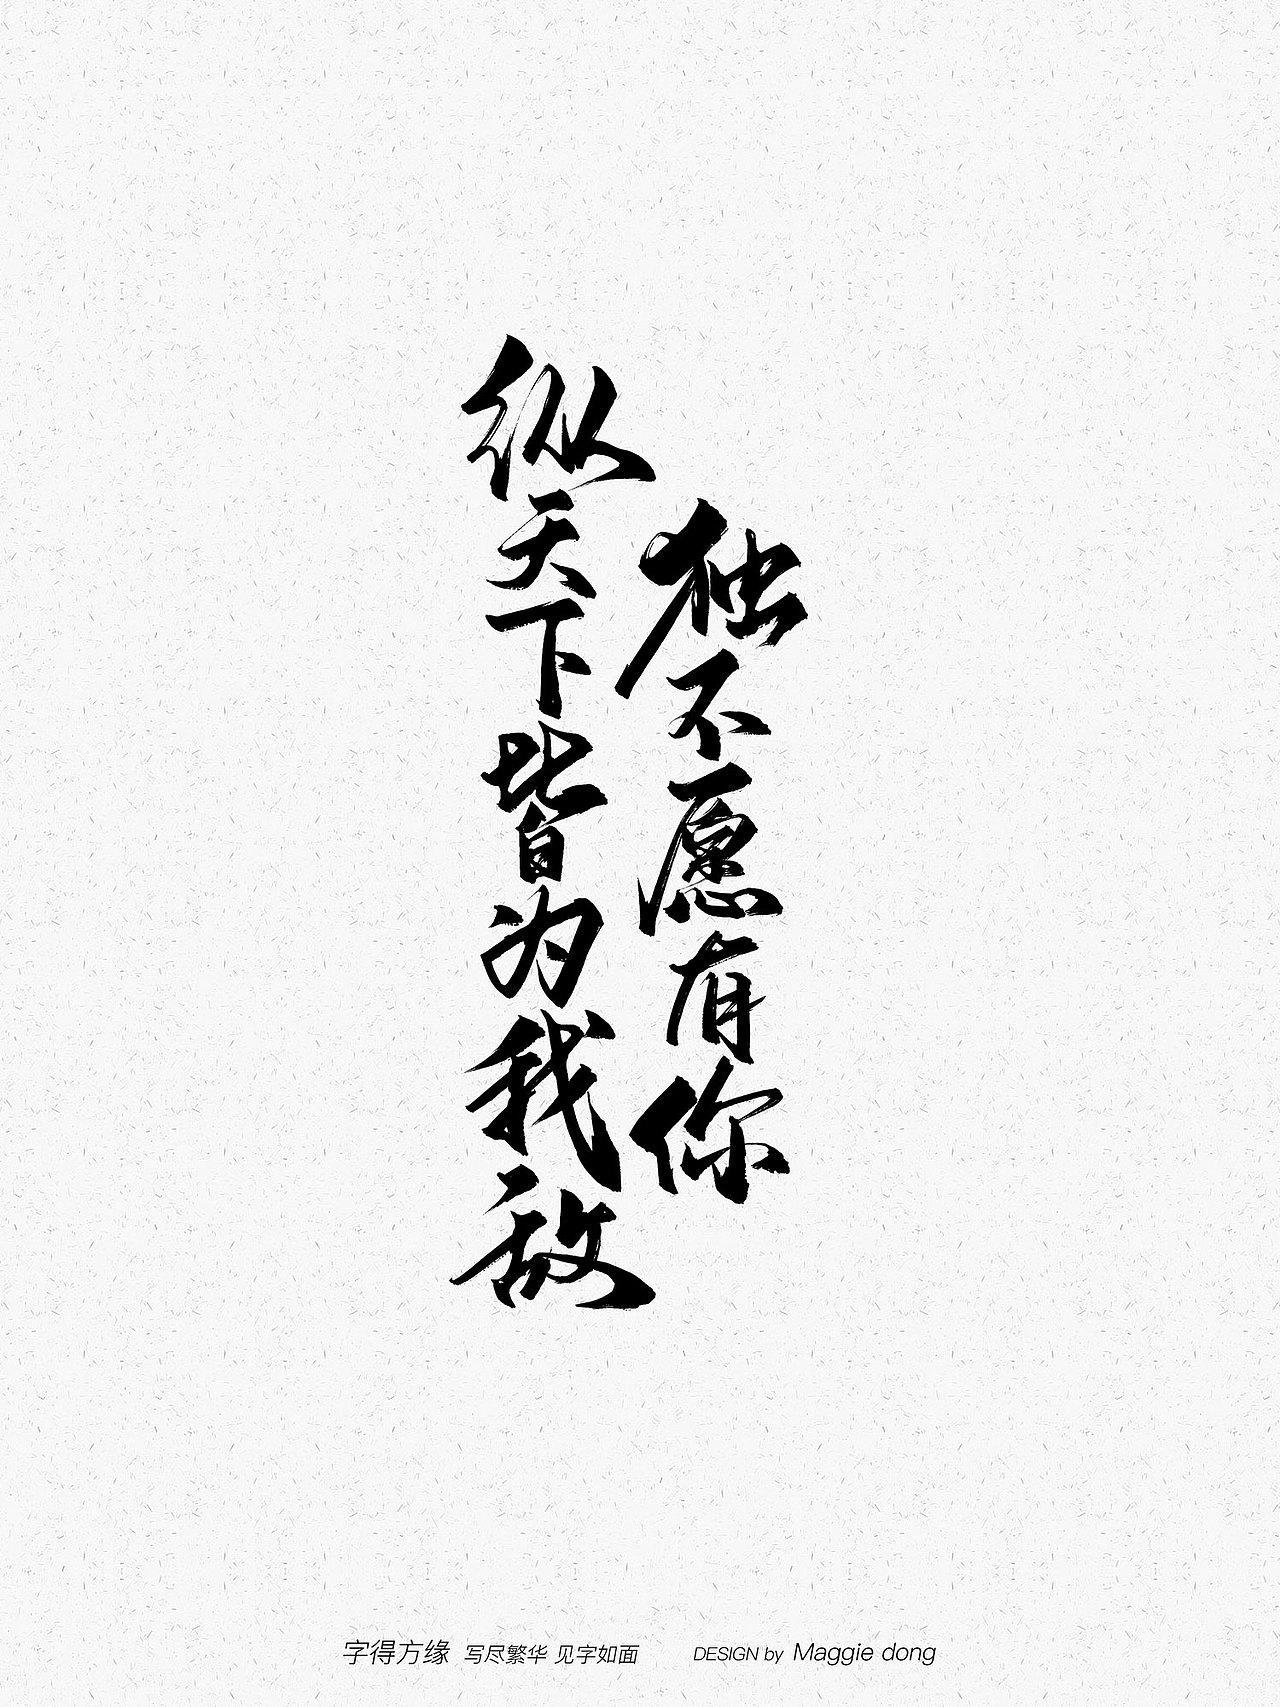 纵天下皆为我敌
独不愿有你
字得方缘 写尽繁华 见字如面 DESIGN by Maggie dong